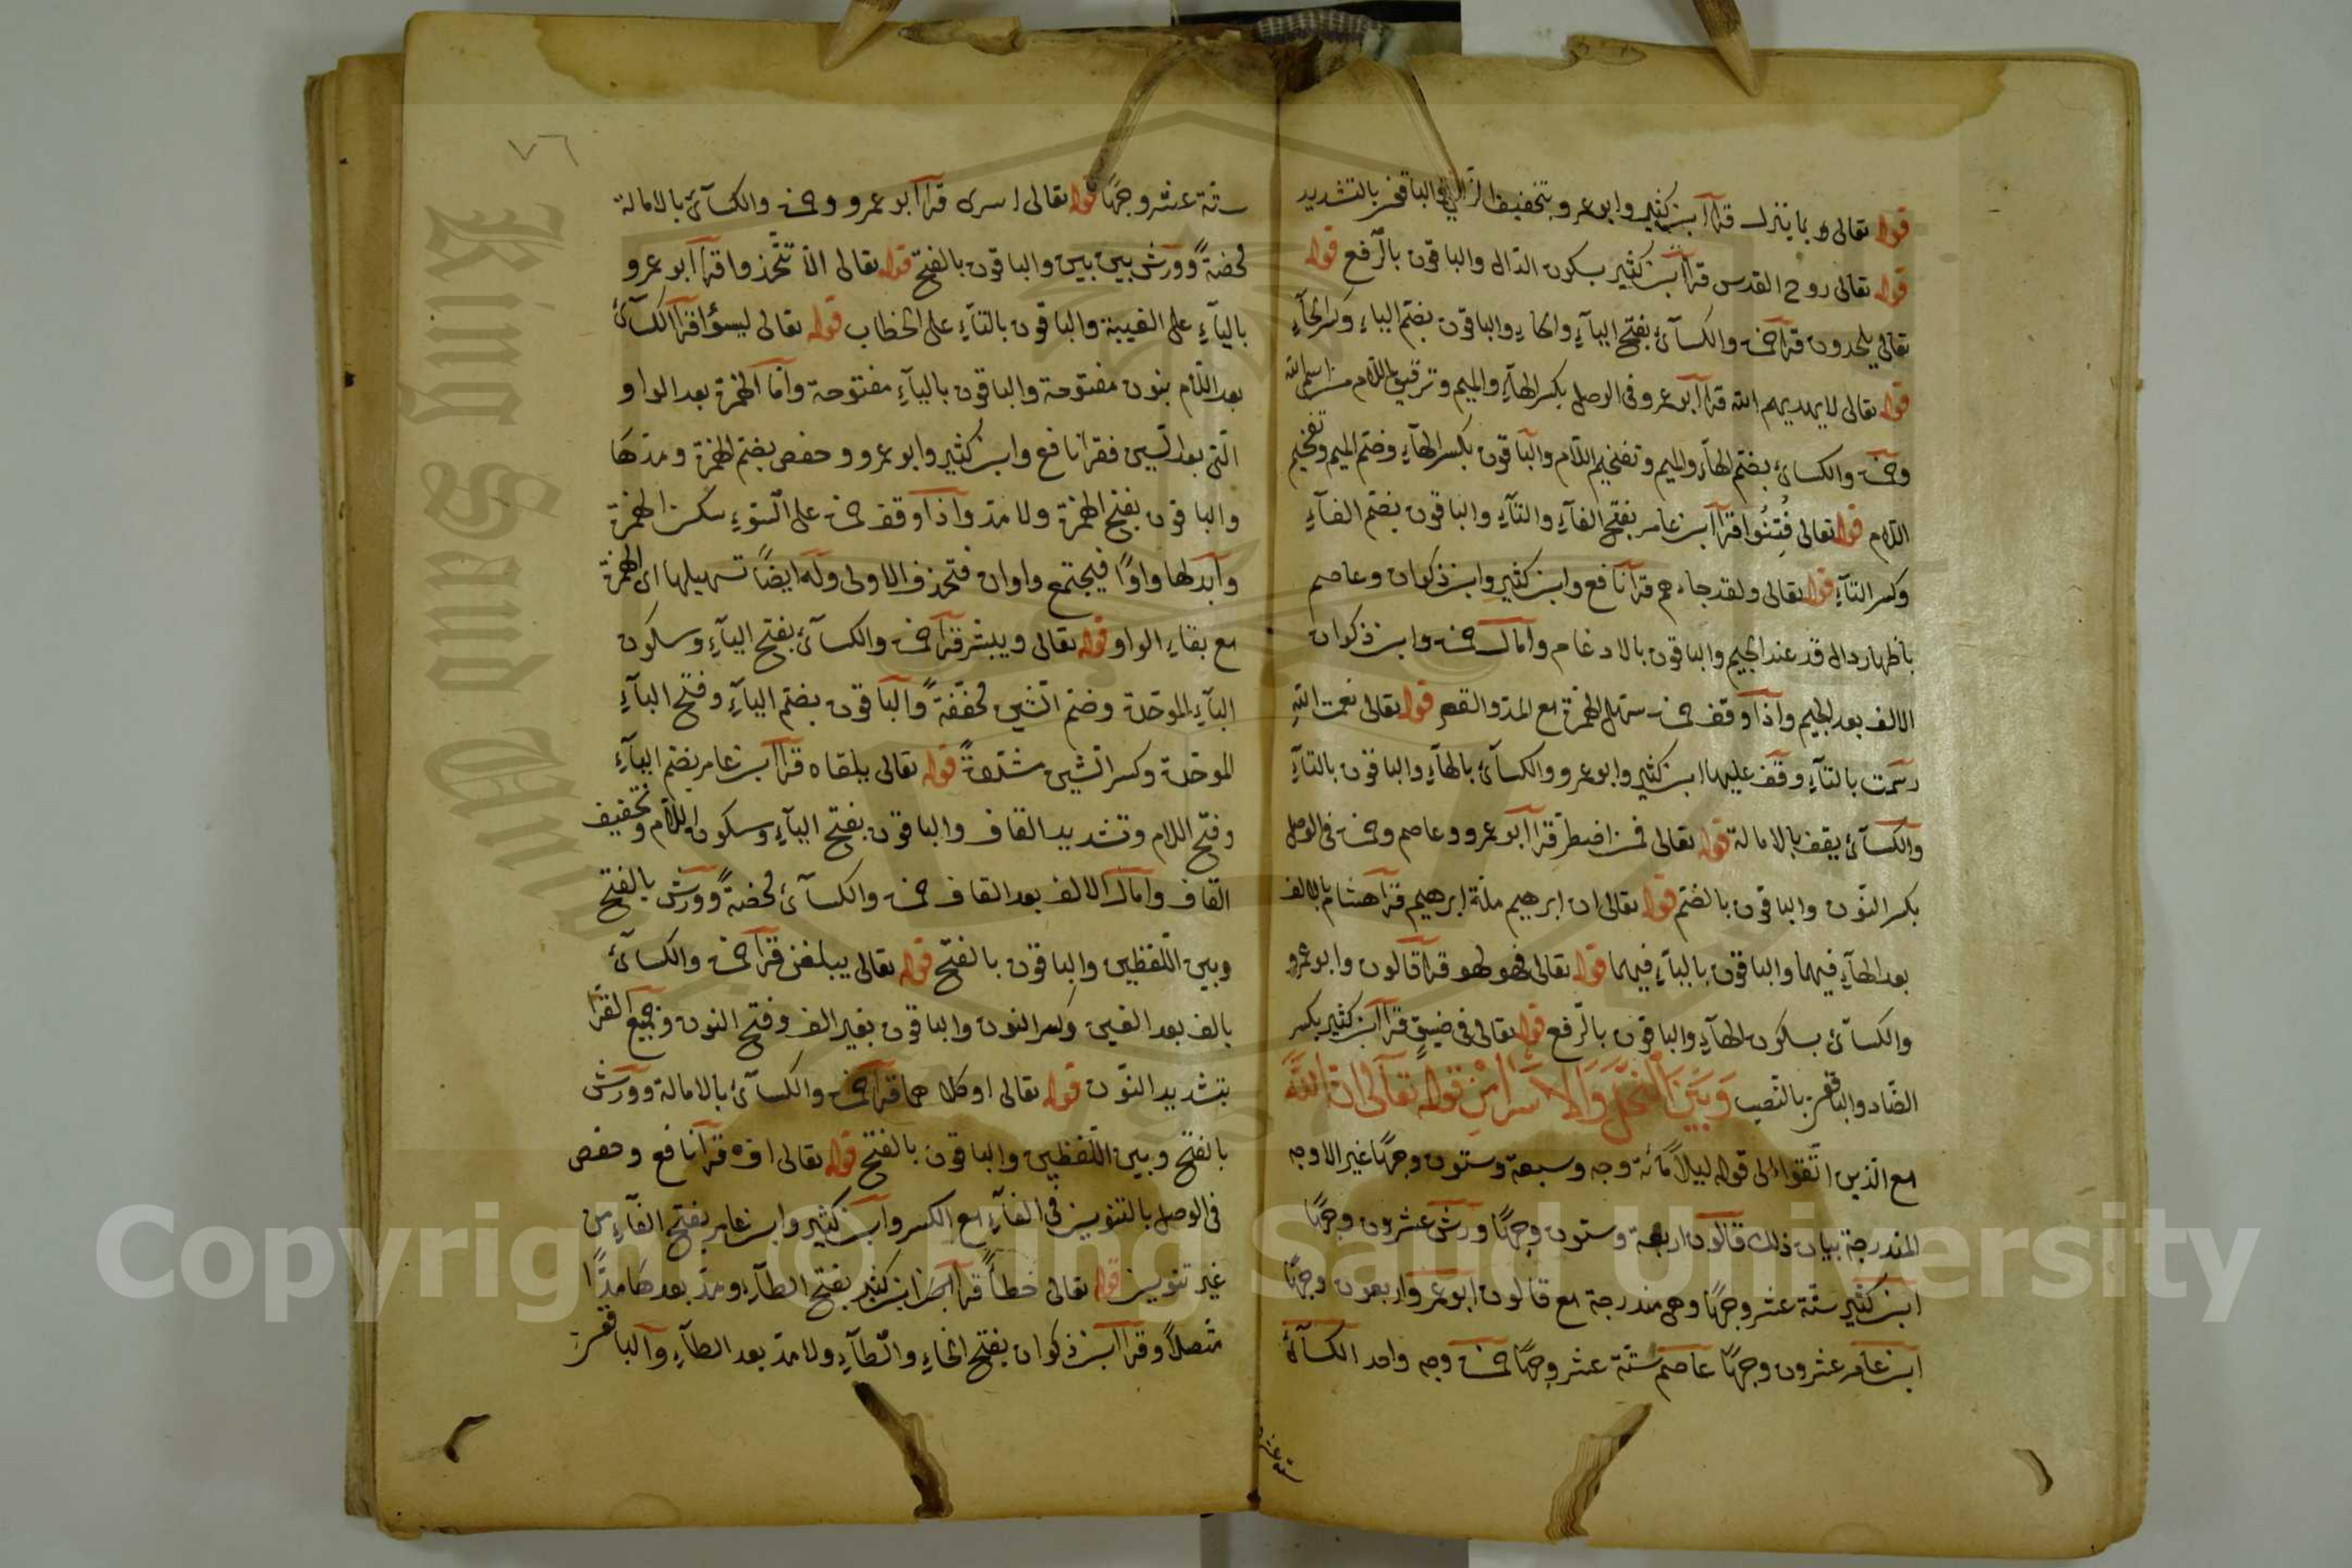 قوله تعالى بما ينزل قرا ابن كثير وابو عمرو بتخفيف الزاي والباقون بالتشديد
قوله تعالى روح القدس قرا ابن كثير بسكون الدال والباقون بالرفع قوله
تعالى يلحدون قرا حمزة والكسائى بفتح الياء والحاء والباقون بضم الياء وكسر الحاء
قوله تعالى لا يهديهم الله قرا ابو عمرو فى الوصل بكسر الهاء والميم وترقيق اللام من اسم الله
وحمزة والكسائى بضم الهاء والميم وتفخيم اللام والباقون بكسر الهاء وضم الميم وتفخيم
اللام قوله تعالى فتنوا قرا ابن عامر بفتح الفاء والتاء والباقون بضم الفاء
وكسر التاء قوله تعالى ولقد جاءهم قرا نافع وابن كثير وابن ذكوان وعاصم
باظهار دال قد عند الجيم والباقون بالادغام وامال حمزة وابن ذكوان
الالف بعد الجيم واذا وقف حمزة سهل الهمزة مع المد والقصر قوله تعالى نعمت الله
رسمت بالتاء وقف عليها ابن كثير وابو عمرو والكسائى بالهاء والباقون بالتاء
والكسائى يقف بالامالة قوله تعالى فمن اضطر قرا ابو عمرو وعاصم وحمزة فى الوصل
بكسر النون والباقون بالضم قوله تعالى ان ابرهيم ملة ابرهيم قرا هشام بالالف
بعد الهاء فيهما والباقون بالياء فيهما قوله تعالى فهو لهو قرا قالون وابو عمرو
والكسائى بسكون الهاء والباقون بالرفع قوله تعالى فى ضيق قرا ابن كثير بكسر
الضاد والباقون بالنصب وبين النحل والاسرا من قوله تعالى ان الله
مع الذين اتقوا الى قوله ليلا مائة وجه وسبعة وستون وجها غير الاوجه
المندرجة بيان ذلك قالون اربعة وستون وجها ورش عشرون وجها
ابن كثير ستة عشر وجها وهى مندرجة مع قالون ابو عمرو اربعون وجها
ابن عامر عشرون وجها عاصم ستة عشر وجها حمزة وجه واحد الكسائى
ستة عشر
٧٦
ستة عشر وجها قوله تعالى اسرى قرا ابو عمرو وحمزة والكسائى بالامالة
محضة وورش بين بين والباقون بالفتح قوله تعالى الا تتخذوا قرا ابو عمرو
بالياء على الغيبة والباقون بالتاء على الخطاب قوله تعالى ليسؤا قرا الكسائى
بعد اللام بنون مفتوحة والباقون بالياء مفتوحة واما الهمزة بعد الواو
التى بعد السين فقرا نافع وابن كثير وابو عمرو وحفص بضم الهمزة ومدها
والباقون بفتح الهمزة ولا مد واذا وقف حمزة على السوء سكن الهمزة
وابدلها واوا فيجتمع واوان فتحذف الاولى وله ايضا تسهيلها اى الهمزة
مع بقاء الواو قوله تعالى ويبشر قرا حمزة والكسائى بفتح الياء وسكون
الباء الموحدة وضم الشين مخففة والباقون بضم الياء وفتح الباء
الموحدة وكسر الشين مشددة قوله تعالى يلقاه قرا ابن عامر بضم الياء
وفتح اللام وتشديد القاف والباقون بفتح الياء وسكون اللام وتخفيف
القاف وامال الالف بعد القاف حمزة والكسائى محضة وورش بالفتح
وبين اللفظين والباقون بالفتح قوله تعالى يبلغن قرا حمزة والكسائى
بالف بعد الغين وكسر النون والباقون بغير الف وفتح النون وجميع القرا
بتشديد النون قوله تعالى او كلاهما قرا حمزة والكسائى بالامالة وورش
بالفتح وبين اللفظين والباقون بالفتح قوله تعالى اف قرا نافع وحفص
فى الوصل بالتنوين فى الفاء مع الكسر وابن كثير وابن عامر بفتح الفاء من
غير تنوين قوله تعالى خطأ قرا ابن كثير بفتح الطاء ومد بعدها مدا
متصلا وقرا ابن ذكوان بفتح الخاء والطاء ولا مد بعد الطاء والباقون
King Saud Univ
Copyright © King Saud University